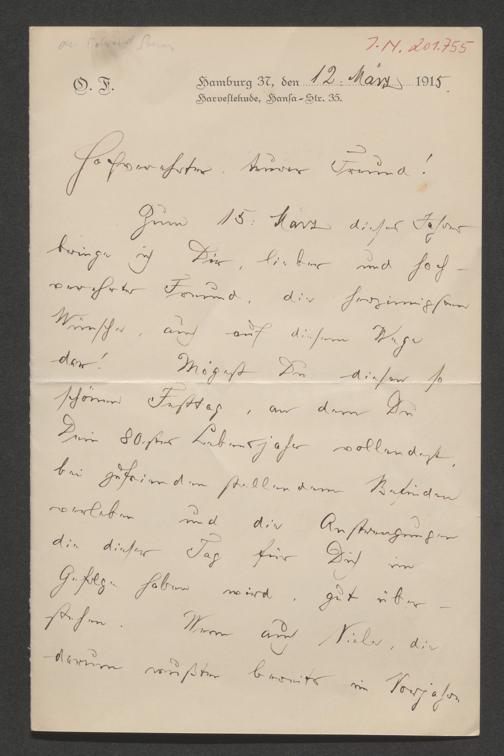 an Eduard
I.N. 201.755
O. F.
Hamburg 37, den 12. März 1915.
Harvestehude, Hansa-Str. 35.
Hochverehrter, teurer Freund!
Zum 15. März dieses Jahres
bringe ich Dir, lieber und hoch-
verehrter Freund, die herzinnigsten
Wünsche, auch auf diesem Wege
dar! Mögest Du diesen so
schönen Festtag, an dem Du
Dein 80stes Lebensjahr vollendest,
bei zufriedenstellendem Befinden
verleben und die Anstrengungen
die dieser Tag für Dich im
Gefolge haben wird, gut über-
stehen. Wenn auch Viele, die
darum wußten bereits im Vorjahre